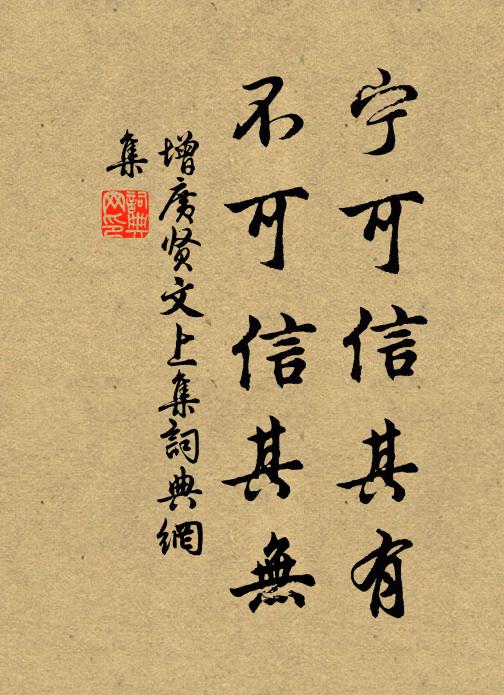 宁可信其有
不可信其無
增广贤文上集詞典網
集
詞典
网印